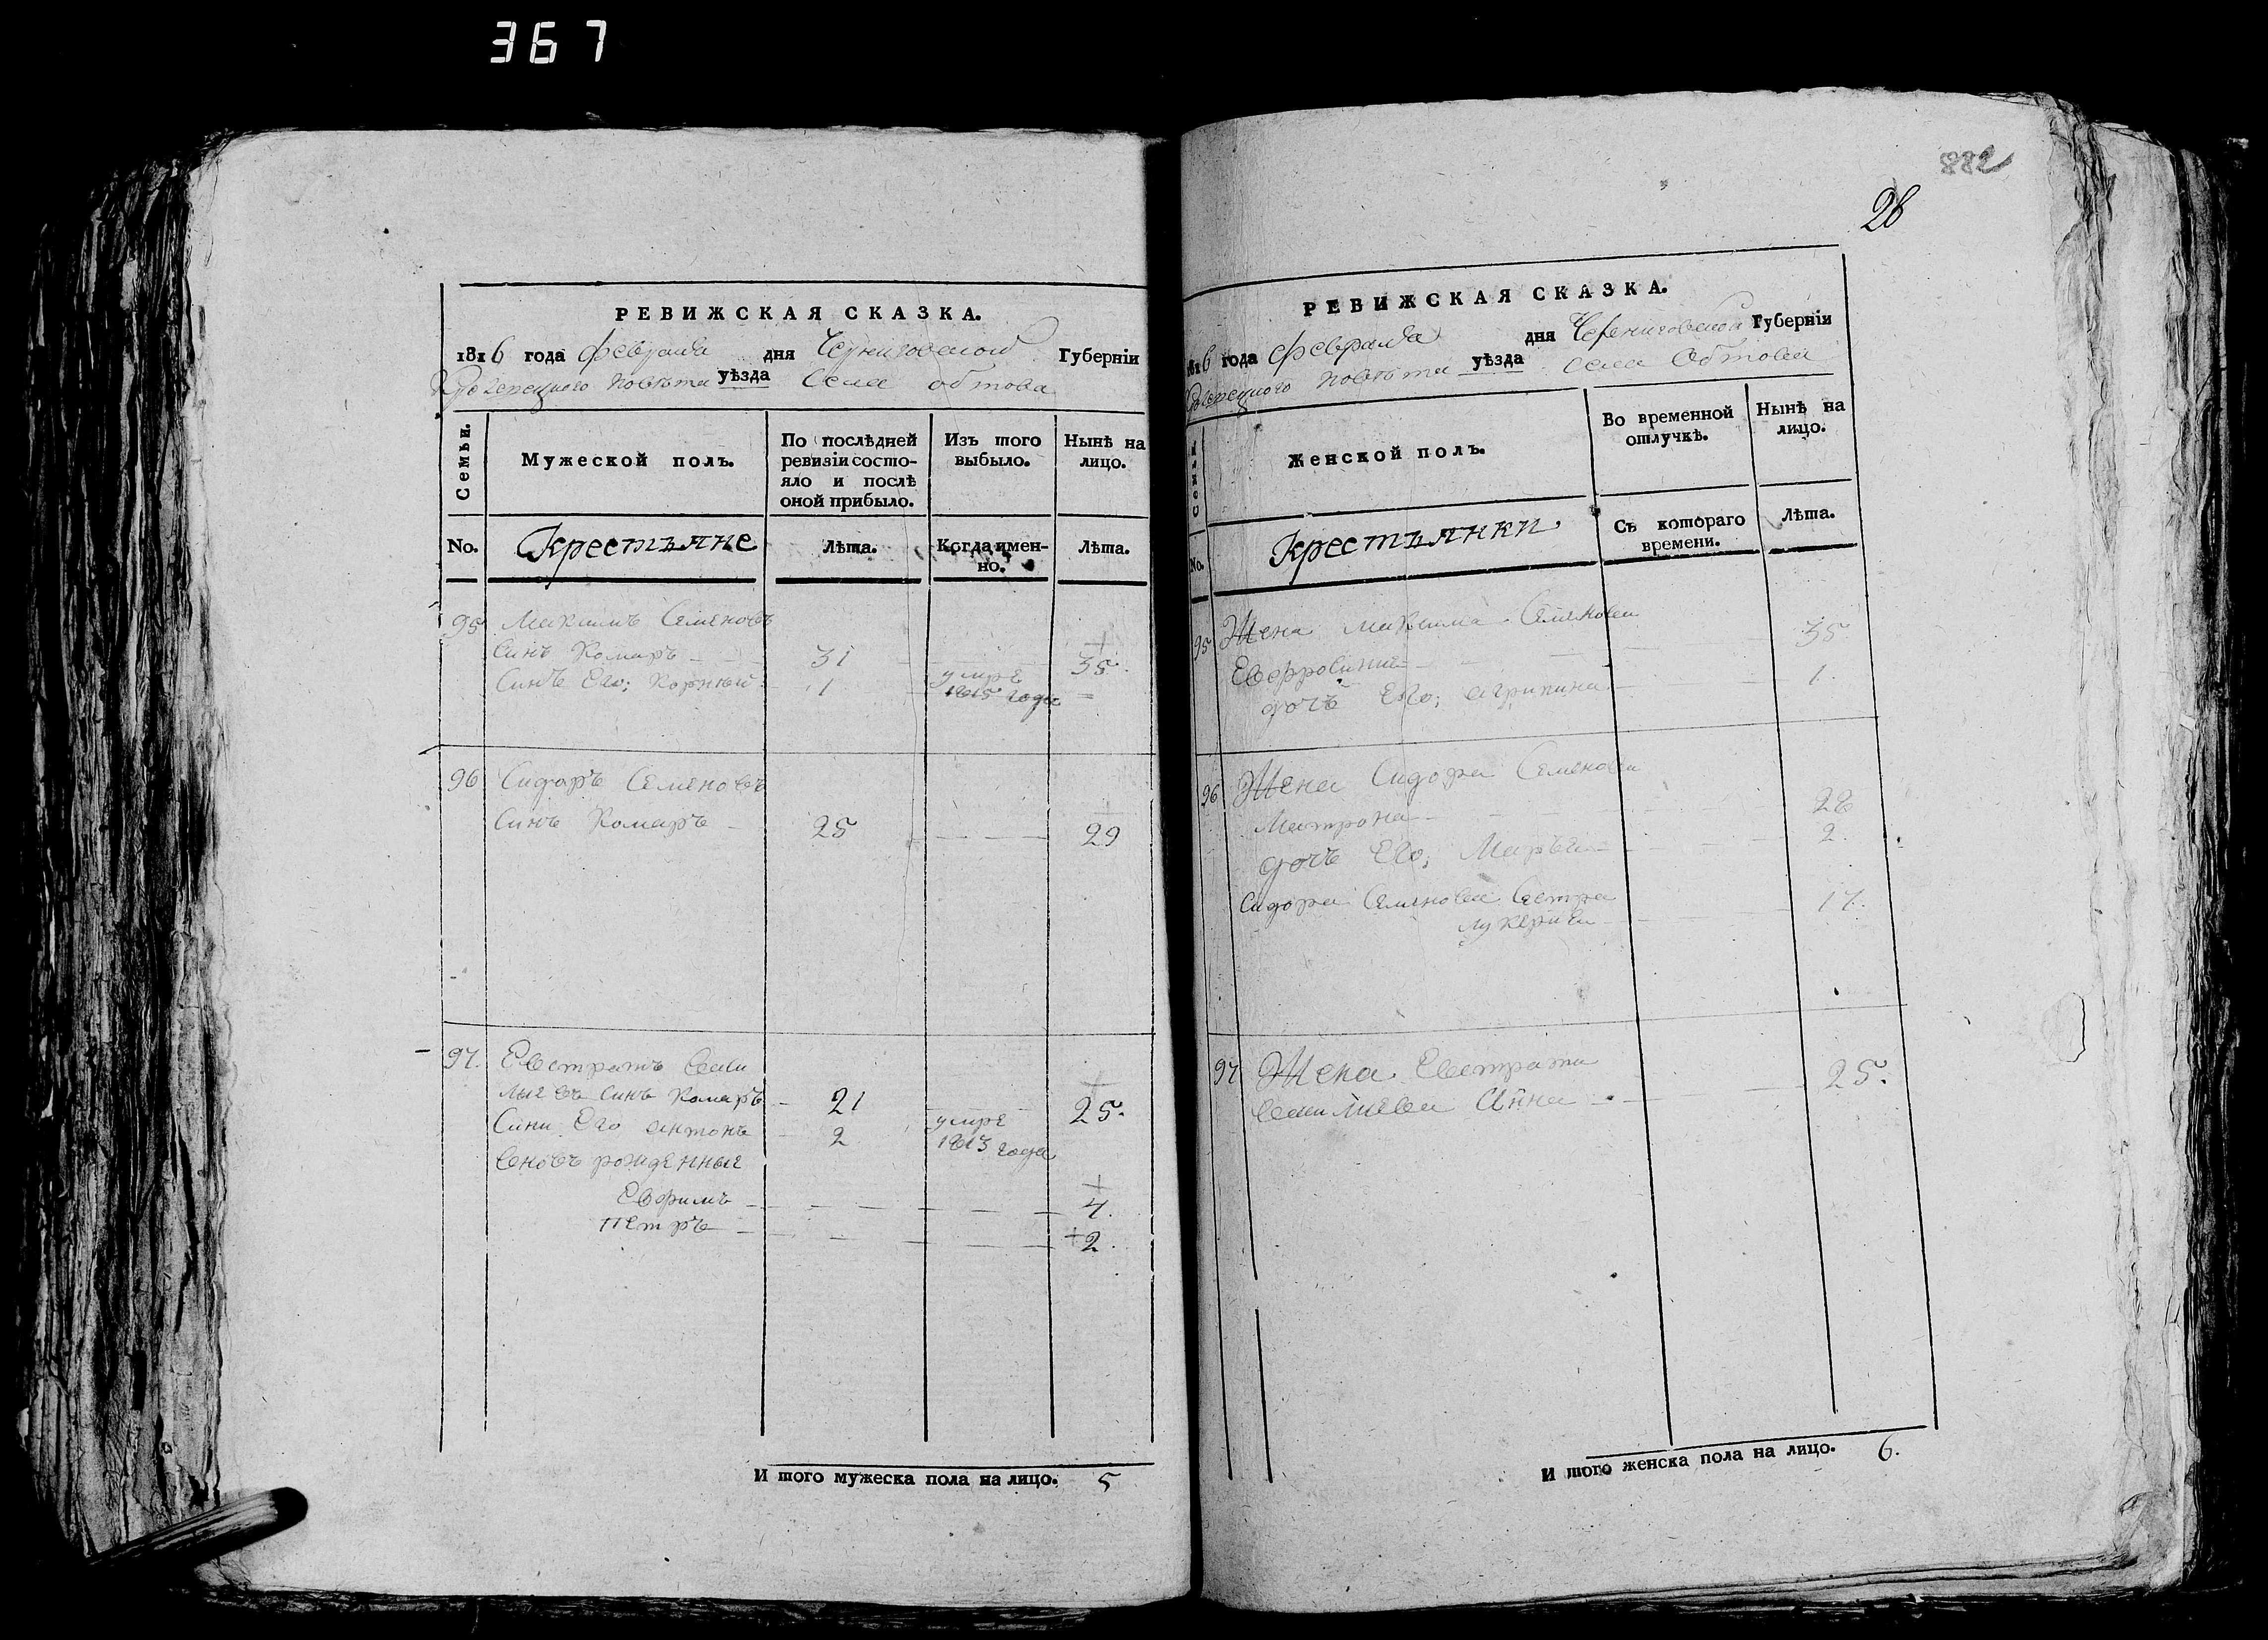 367
РЕВИЖСКАЯ СКАЗКА.
1816 года февраля дня Черниговской Губерніи
повѣта уѣзда села обтова
Семьи.
Мужеской полъ.
По послѣдней ревизіи состо-
яло и послѣ
оной прибыло.
Изъ того
выбыло.
Нынѣ на
лицо.
No.
Крестьяне
Лѣта.
Когда имен-
но.
Лѣта.
95 Максимъ Семеновъ
Синъ Комаръ 31 35.
Синъ Его; Корний 1 умре 1815 года
96 Сидоръ Семеновъ
Синъ Комаръ 25 29
97. Евстратъ
синъ Комаръ 21 25.
Сини Его антонъ 2 умре 1813 года
вновъ рожденные
Евфимъ 4.
Петръ 2.
И того мужеска пола на лицо. 5
882
28
РЕВИЖСКАЯ СКАЗКА.
1816 года февраля дня Черниговской Губерніи
повѣта уѣзда села Обтова
Семьи
Женской полъ.
Во временной
отлучкѣ.
Нынѣ на
лицо.
No.
Крестьянки
Съ котораго
времени.
Лѣта.
95 Жена максима Семенова
Евфросиния 35
дочъ Его; агрипина 1.
96 Жена Сидора Семенова
Матрона 28
дочъ Его; Маръя 2.
Сидора Семенова Сестра
лукерия 17.
97 Жена Евстрата
Анна 25.
И того женска пола на лицо. 6.